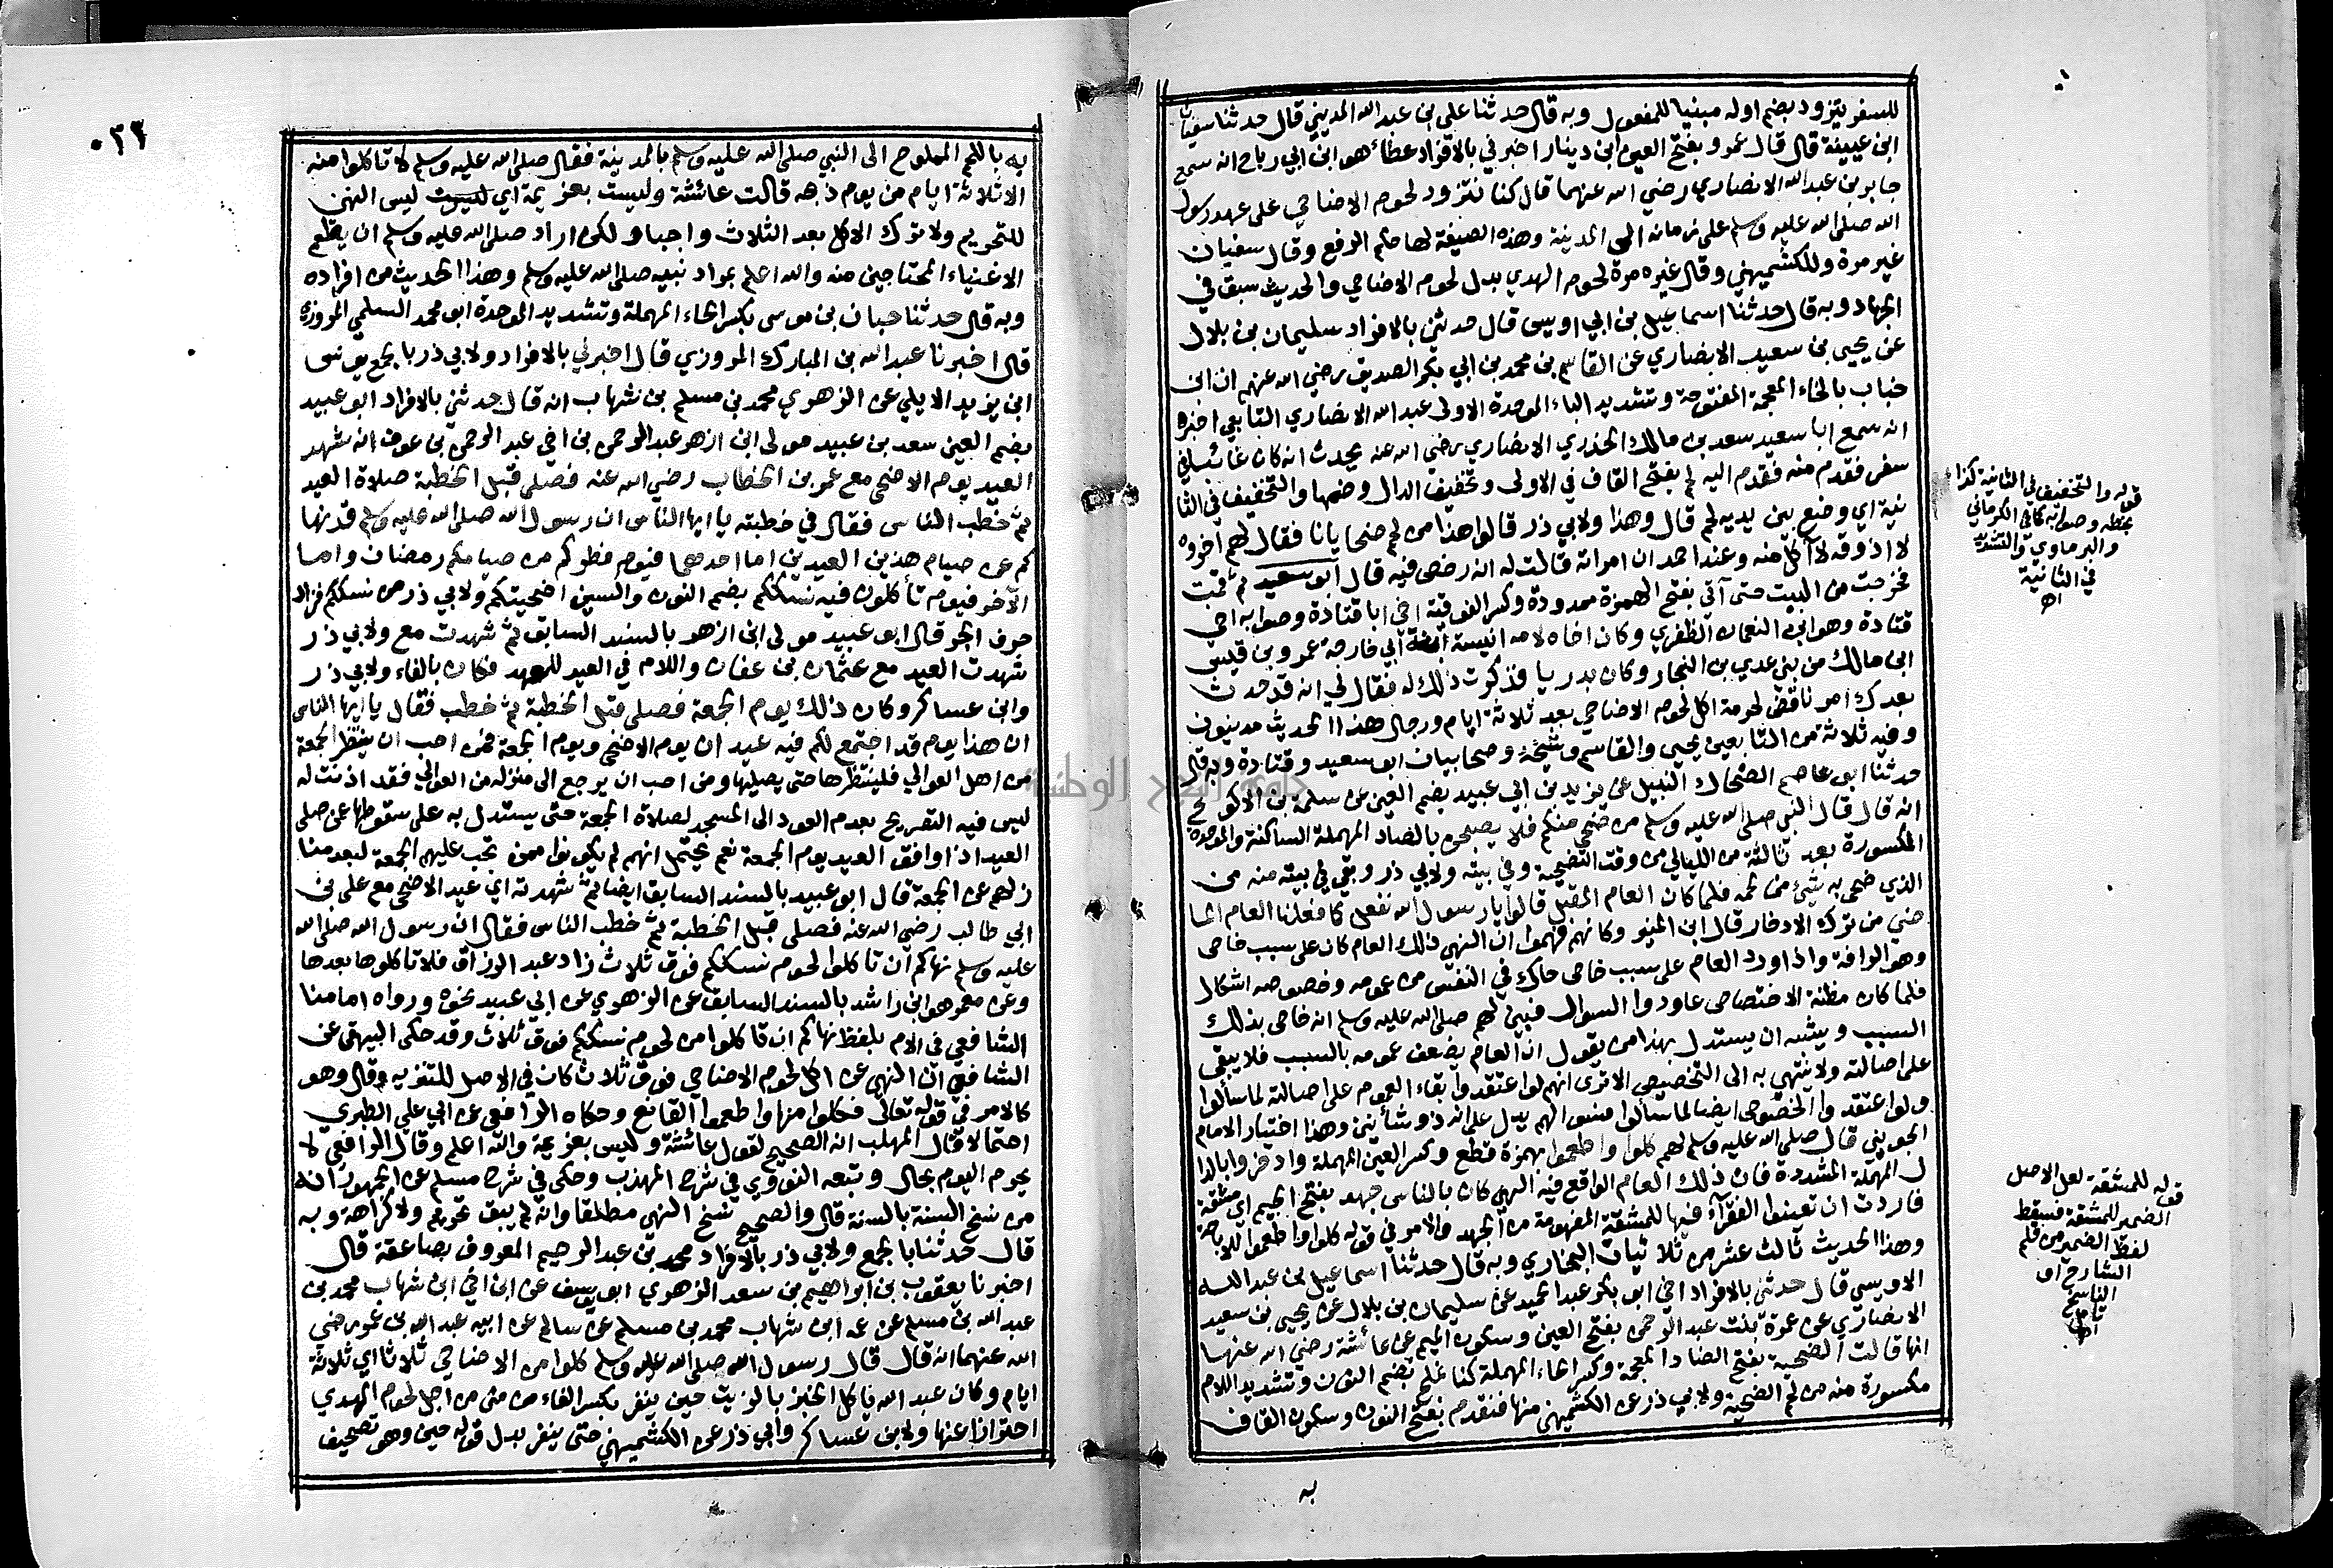 للسفر يتزود بضم اوله مبنيا للمفعول وبه قال حدثنا علي بن عبد الله المديني قال حدثنا سفيان
ابن عيينة قال قال عمرو بفتح العين ابن دينار اخبرني بالافراد عطاء هو ابن ابي رباح انه سمع
جابر بن عبد الله الانصاري رضي الله عنهما قال كنا نتزود لحوم الاضاحي على عهد رسول
الله صلى الله عليه وسلم على زمانه الى المدينة وهذه الصيغة لها حكم الرفع وقال سفيان
غير مرة وللكشميهني وقال غيره مرة لحوم الهدي بدل لحوم الاضاحي والحديث سبق في
الجهاد وبه قال حدثنا اسماعيل بن ابي اويس قال حدثني بالافراد سليمان بن بلال
عن يحيى بن سعيد الانصاري عن القاسم بن محمد بن ابي بكر الصديق رضي الله عنهم ان ابن
خباب بالخاء المعجمة المفتوحة وتشديد الباء الموحدة الاولى عبد الله الانصاري التابعي اخبره
انه سمع ابا سعيد سعد بن مالك الخدري الانصاري رضي الله عنه يحدث انه كان غائبا في
سفر فقدم منه فقدم اليه لحم بفتح القاف في الاولى وتخفيف الدال وضمها والتخفيف في الثا
نية اي وضع بين يديه لحم قال وهذا ولابي ذر قالوا هذا من لحم ضحايانا فقال لهم اخروه
لا اذوقه لا آكل منه وعند احمد ان امراته قالت له انه رخص فيه قال ابو سعيد ثم قمت
فخرجت من البيت حتى آتي بفتح الهمزة ممدودة وكسر الفوقية اخي ابا قتادة وصوابه اخي
قتادة وهو ابن النعمان الظفري وكان اخاه لامه انيسة ابنة ابي خارجة عمرو بن قيس
ابن مالك من بني عدي بن النجار وكان بدريا فذكرت ذلك له فقال لي انه قد حدث
بعدك امر ناقض لحرمة اكل لحوم الاضاحي بعد ثلاثة ايام ورجال هذا الحديث مدنيون
وفيه ثلاثة من التابعين يحيى والقاسم وشيخه وصحابيان ابو سعيد وقتادة وبه قال
حدثنا ابو عاصم الضحاك النبيل عن يزيد بن ابي عبيد بضم العين عن سلمة بن الاكوع
انه قال قال النبي صلى الله عليه وسلم من ضحى منكم فلا يصبحن بالصاد المهملة الساكنة والموحدة
المكسورة بعد ثالثة من الليالي من وقت التضحية وفي بيته ولابي ذر وبقي في بيته منه من
الذي ضحى به شيء من لحمه فلما كان العام المقبل قالوا يا رسول الله نفعل كما فعلنا العام الما
ضي من ترك الادخار قال ابن المنير وكانهم فهموا ان النهي ذلك العام كان على سبب خاص
وهو الرافة واذا ورد العام على سبب خاص حاك في النفس من عمومه وخصوصه اشكال
فلما كان مظنة الاختصاص عاودوا السوال فبين لهم صلى الله عليه وسلم انه خاص بذلك
السبب ويشبه ان يستدل بهذا من يقول ان العام يضعف عمومه بالسبب فلا يبقى
على اصالته ولا ينتهي به الى التخصيص الا ترى انهم لو اعتقدوا بقاء العموم على اصالته لما سالوا
ولو اعتقدوا الخصوص ايضا لما سالوا فسوالهم يدل على انه ذو شأنين وهذا اختيار الامام
الجويني قال صلى الله عليه وسلم لهم كلوا واطعموا بهمزة قطع وكسر العين المهملة وادخروا بالدا
ل المهملة المشددة فان ذلك العام الواقع فيه النهي كان بالناس جهد بفتح الجيم اي مشقة
فاردت ان تعينوا الفقراء فيها للمشقة المفهومة من الجهد والامر في قوله كلوا واطعموا للاباحة
وهذا الحديث ثالث عشر من ثلاثيات البخاري وبه قال حدثنا اسماعيل بن عبد الله
الاويسي قال حدثني بالافراد اخي ابو بكر عبد الحميد عن سليمان بن بلال عن يحيى بن سعيد
الانصاري عن عمرة بنت عبد الرحمن بفتح العين وسكون الميم عن عائشة رضي الله عنها
انها قالت الضحية بفتح الضاد المعجمة وكسر الحاء المهملة كنا نملح بضم النون وتشديد اللام
مكسورة منه من لحم الضحية ولابي ذر عن الكشميهني منها فنقدم بفتح النون وسكون القاف
به
قوله والتخفيف في الثانية كذا
بخطه وصوابه كما في الكرماني
والبرماوي والتشديد
في الثانية
اهـ
قوله للمشقة لعل الاصل
الضمير للمشقة فسقط
لفظ الضمير من قلم
الشارح او
الناسخ
تأمل
اهـ
٠٣٣
به باللحم المملوح الى النبي صلى الله عليه وسلم بالمدينة فقال صلى الله عليه وسلم لا تاكلوا منه
الا ثلاثة ايام من يوم ذبحه قالت عائشة وليست بعزيمة اي ليست ليس النهي
للتحريم ولا ترك الاكل بعد الثلاث واجبا ولكن اراد صلى الله عليه وسلم ان يطعم
الاغنياء المحتاجين منه والله اعلم بمراد نبيه صلى الله عليه وسلم وهذا الحديث من افراده
وبه قال حدثنا حبان بن موسى بكسر الحاء المهملة وتشديد الموحدة ابو محمد السلمي المروزي
قال اخبرنا عبد الله بن المبارك المروزي قال اخبرني بالافراد ولابي ذر بالجمع يونس
ابن يزيد الايلي عن الزهري محمد بن مسلم بن شهاب انه قال حدثني بالافراد ابو عبيد
بضم العين سعد بن عبيد مولى ابن ازهر عبد الرحمن بن اخي عبد الرحمن بن عوف انه شهد
العيد يوم الاضحى مع عمر بن الخطاب رضي الله عنه فصلى قبل الخطبة صلاة العيد
ثم خطب الناس فقال في خطبته يا ايها الناس ان رسول الله صلى الله عليه وسلم قد نها
كم عن صيام هذين العيدين اما احدهما فيوم فطركم من صيامكم رمضان واما
الآخر فيوم تأكلون فيه نسككم بضم النون والسين اضحيتكم ولابي ذر من نسككم فزاد
حرف الجر قال ابو عبيد مولى ابن ازهر بالسند السابق ثم شهدت مع ولابي ذر
شهدت العيد مع عثمان بن عفان واللام في العيد للعهد فكان بالفاء ولابي ذر
وابن عساكر وكان ذلك يوم الجمعة فصلى قبل الخطبة ثم خطب فقال يا ايها الناس
ان هذا يوم قد اجتمع لكم فيه عيدان يوم الاضحى ويوم الجمعة فمن احب ان ينتظر الجمعة
من اهل العوالي فلينتظرها حتى يصليها ومن احب ان يرجع الى منزله من العوالي فقد اذنت له
ليس فيه التصريح بعدم العود الى المسجد لصلاة الجمعة حتى يستدل به على سقوطها عمن صلى
العيد اذا وافق العيد يوم الجمعة نعم يحتمل انهم لم يكونوا ممن تجب عليهم الجمعة لبعد منا
زلهم عن الجمعة قال ابو عبيد بالسند السابق ايضا ثم شهدته اي عيد الاضحى مع علي بن
ابي طالب رضي الله عنه فصلى قبل الخطبة ثم خطب الناس فقال ان رسول الله صلى الله
عليه وسلم نهاكم ان تاكلوا لحوم نسككم فوق ثلاث زاد عبد الرزاق فلا تاكلوها بعدها
وعن معمر هو ابن راشد بالسند السابق عن الزهري عن ابي عبيد نحوه ورواه امامنا
الشافعي في الام بلفظ نهاكم ان تاكلوا من لحوم نسككم فوق ثلاث وقد حكى البيهقي عن
الشافعي ان النهي عن اكل لحوم الاضاحي فوق ثلاث كان في الاصل للتنزيه وقال وهو
كالامر في قوله تعالى فكلوا منها واطعموا القانع وحكاه الرافعي عن ابي علي الطبري
احتمالا قال المهلب انه الصحيح لقول عائشة وليس بعزيمة والله اعلم وقال الرافعي لا
يحرم اليوم بحال وتبعه النووي في شرح المهذب وحكى في شرح مسلم عن الجمهور انه
من نسخ السنة بالسنة قال والصحيح نسخ النهي مطلقا وانه لم يبق تحريم ولا كراهة وبه
قال حدثنا بالجمع ولابي ذر بالافراد محمد بن عبد الرحيم المعروف بصاعقة قال
اخبرنا يعقوب بن ابراهيم بن سعد الزهري ابو يوسف عن ابن اخي ابن شهاب محمد بن
عبد الله بن مسلم عن عمه ابن شهاب محمد بن مسلم عن سالم عن ابيه عبد الله بن عمر رضي
الله عنهما انه قال قال رسول الله صلى الله عليه وسلم كلوا من الاضاحي ثلاثا اي ثلاثة
ايام وكان عبد الله ياكل الخبز بالزيت حين ينفر بكسر الفاء من منى من اجل لحوم الهدي
احترازا عنها ولابن عساكر وابي ذر عن الكشميهني حتى ينفر بدل قوله حين وهو تصحيف
جامعة النجاح الوطنية